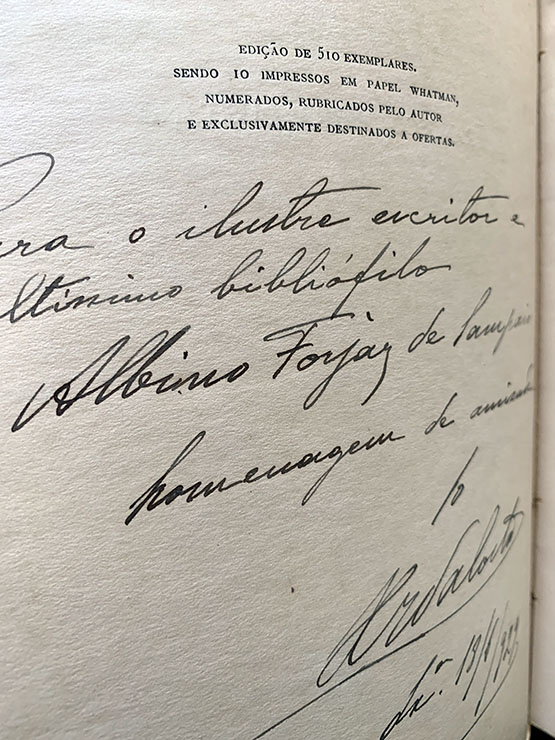 EDIÇÃO DE 510 EXEMPLARES.
SENDO 10 IMPRESSOS EM PAPEL WHATMAN,
NUMERADOS, RUBRICADOS PELO AUTOR
E EXCLUSIVAMENTE DESTINADOS A OFERTAS.
Para o ilustre escritor e
altíssimo bibliófilo
Albino Forjaz de Sampaio
homenagem de amizade